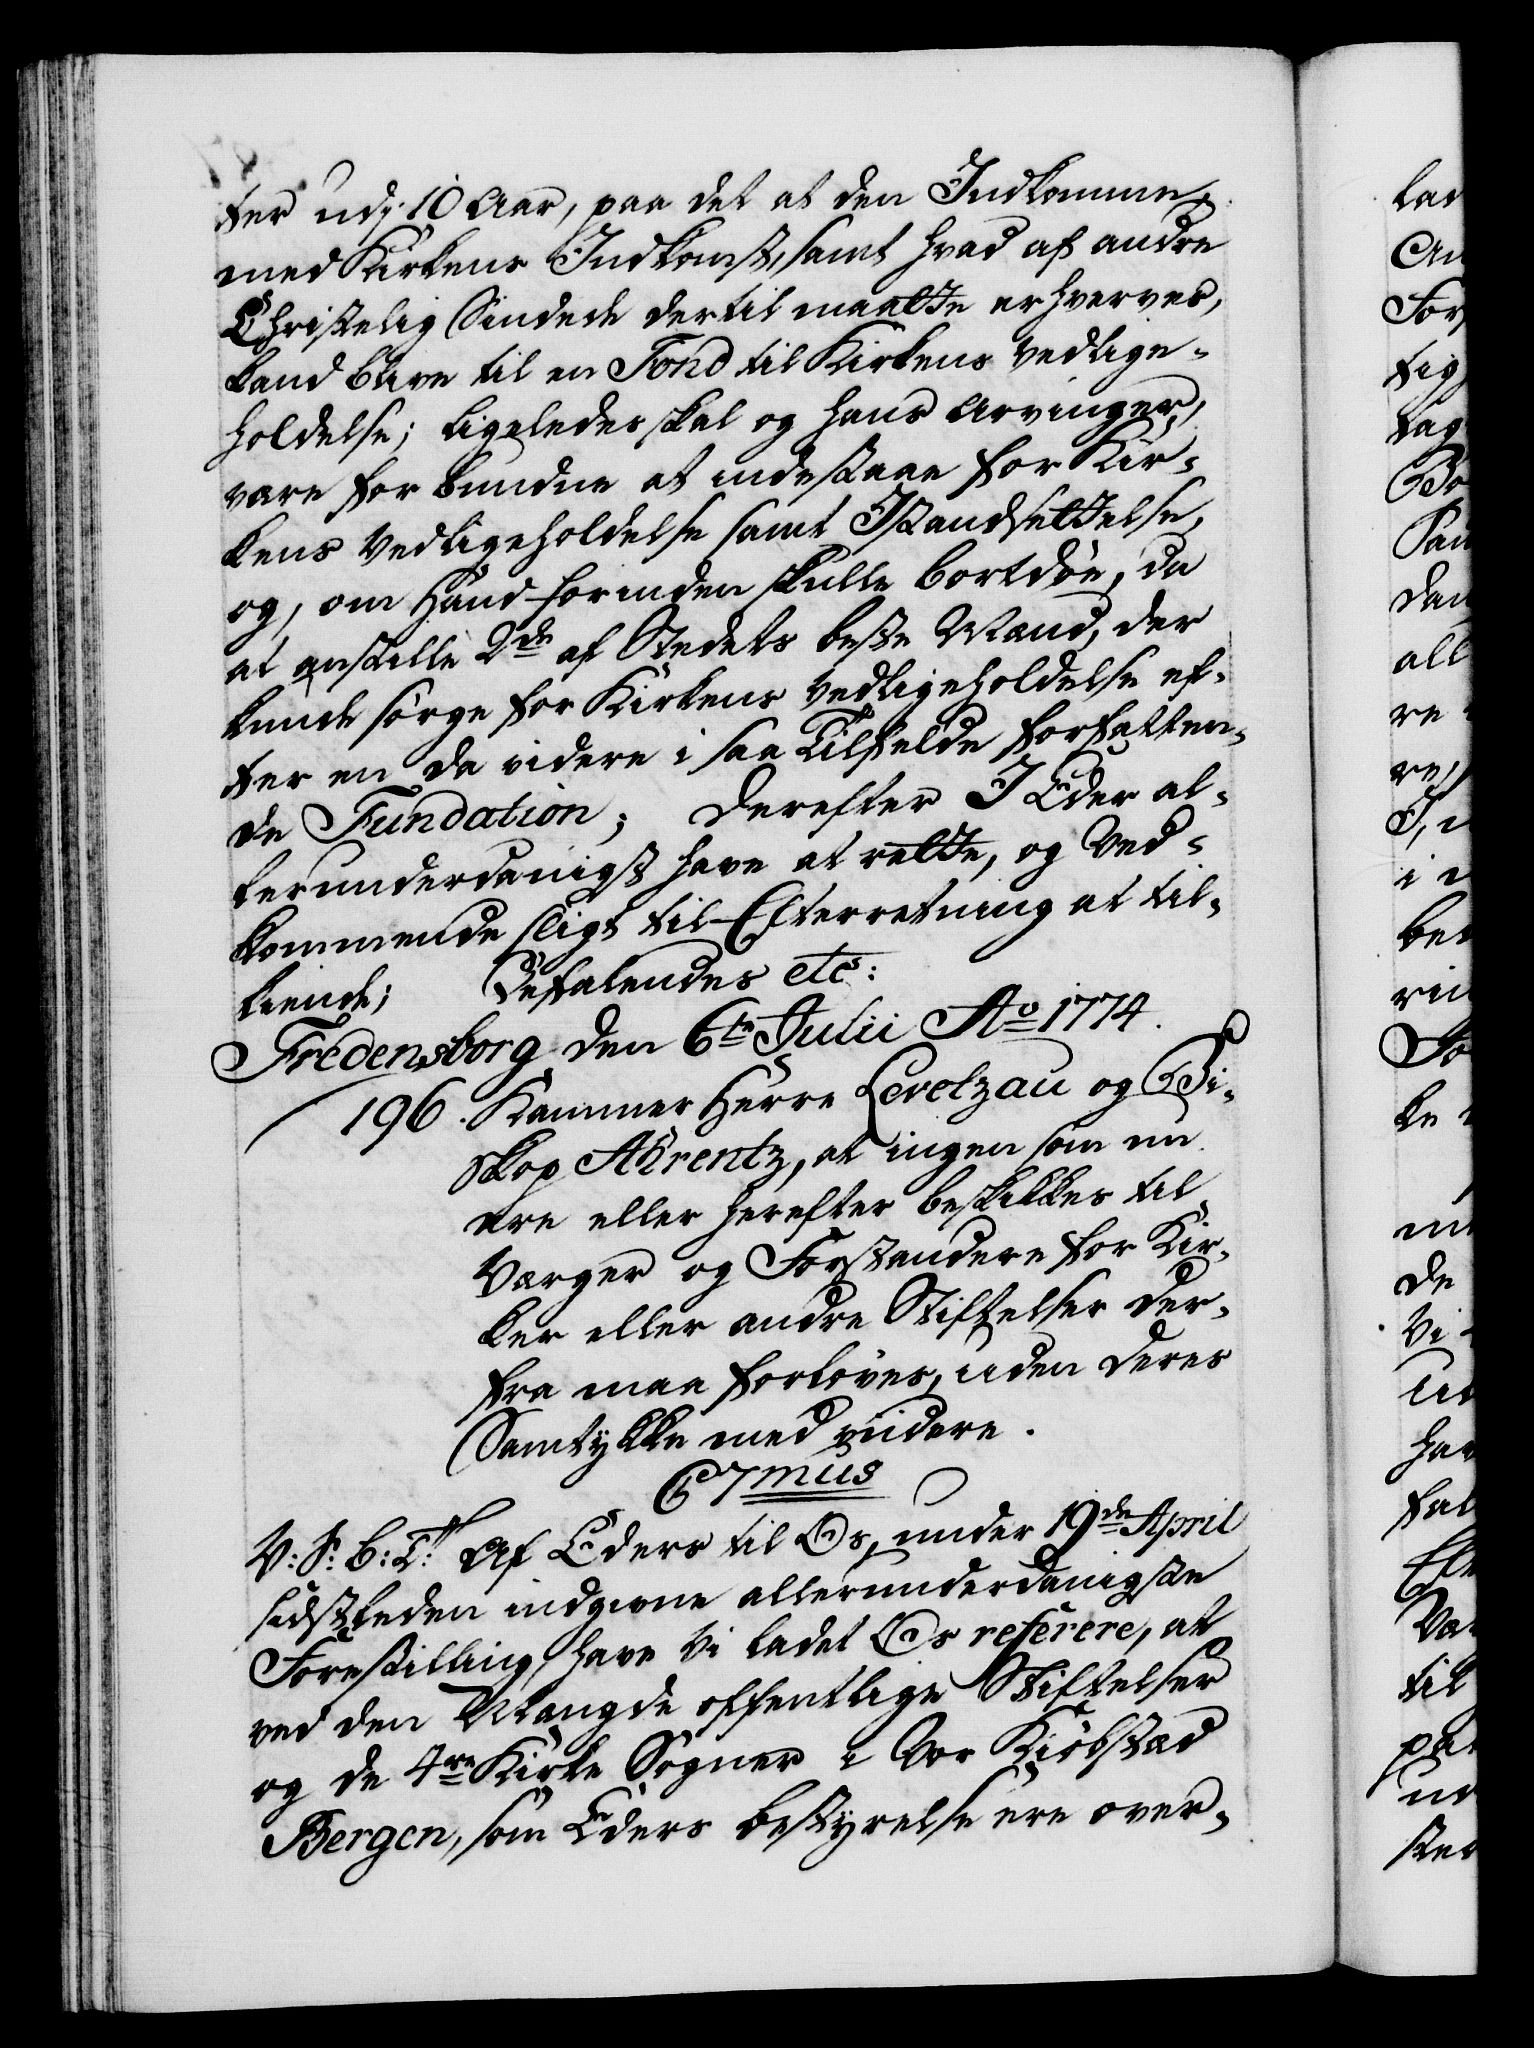 ter udj 10 Aar, paa det at den Indkomme,
med Kirkens Indkomst, samt hvad af andre
Christelig Sindede dertil maatte erhverves,
kand blive til en Fond til Kirkens vedlige-
holdelse; ligeledes skal og hans Arvinger,
være forbundne at indestaae for Kir-
kens Vedligeholdelse samt Istandsettelse,
og, om Hand forinden skulle bortdøe, da
at anstille 2de af Stedets beste Mænd, der
kunde sørge for Kirkens Vedligeholdelse ef-
ter en da videre i saa Tilfelde forfatten-
de Fundation; Derefter I Eder al-
lerunderdanigst have at rette, og Ved-
kommende sligt til Efterretning at til-
kiende; Befalendes etc:
Fredensborg den 6te Julii Ao 1774.
196. Kammer Herre Levetzau og Bi-
skop Ahrentz, at ingen som nu
ere eller herefter beskikkes til
Værger og Forstandere for Kir-
ker eller andre Stiftelser der-
fra maa forløves, uden deres
Samtykke med viidere.
C7mus
V: S: B: T: Af Eders til Os, under 19de April
sidstleden indgivne allerunderdanigste
Forestilling, have Vi ladet Os referere, at
ved den Mængde offentlige Stiftelser
og de 4re Kirke Sogner i Vor Kiøbstad
Bergen, som Eders bestyrelse ere over-